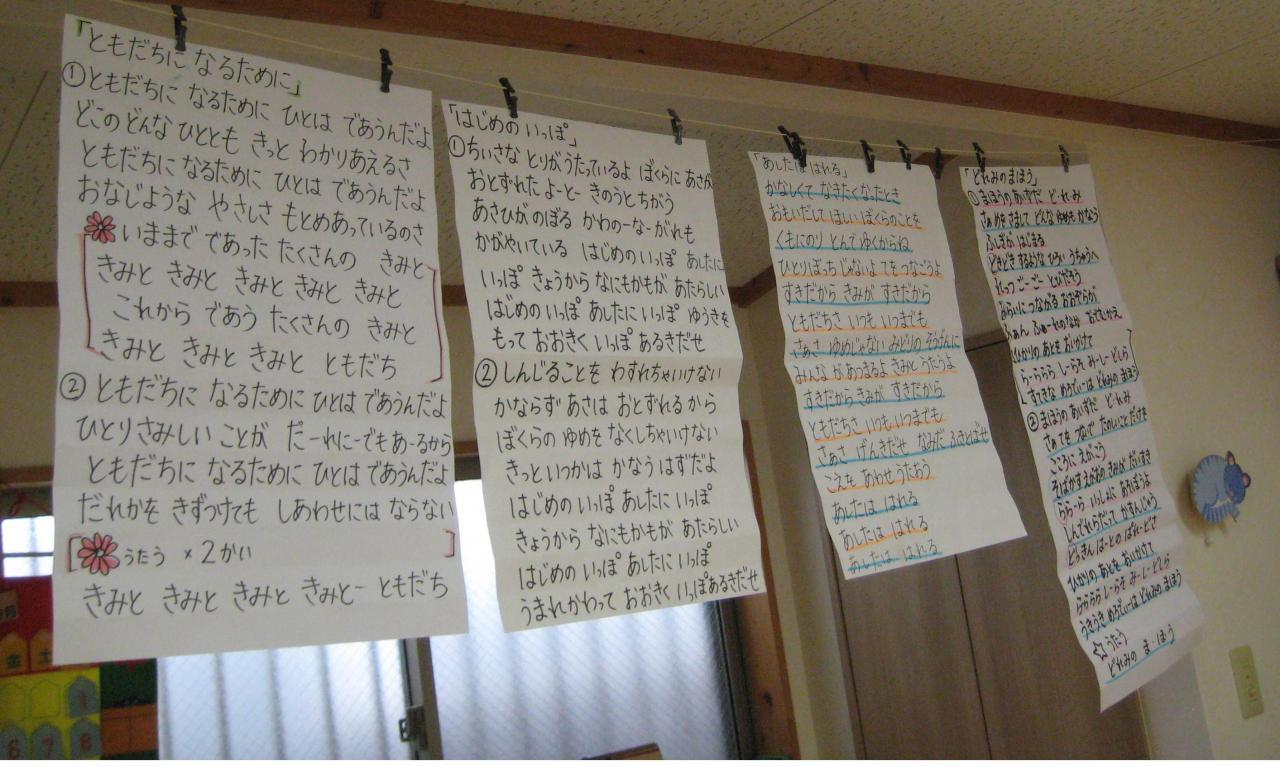 「ともだちに なるために」
①ともだちに なるために ひとは であうんだよ
どこの どんな ひととも きっと わかりあえるさ
ともだちに なるために ひとは であうんだよ
おなじような やさしさ もとめあっているのさ
いままで であった たくさんの きみと
きみと きみと きみと きみと きみと
これから であう たくさんの きみと
きみと きみと きみと ともだち
② ともだちに なるために ひとは であうんだよ
ひとりさみしい ことが だーれにーでもあーるから
ともだちに なるために ひとは であうんだよ
だれかを きずつけても しあわせには ならない
うたう ×2かい
きみと きみと きみと きみとー ともだち
「はじめの いっぽ」
①ちいさな とりがうたっているよ ぼくらに あさが
おとずれた よーとー きのうと ちがう
あさひが のぼる かわのーなーがれも
かがやいている はじめの いっぽ あしたに
いっぽ きょうから なにもかもが あたらしい
はじめの いっぽ あしたに いっぽ ゆうきを
もって おおきく いっぽ あるきだせ
② しんじることを わすれちゃいけない
かならず あさは おとずれる から
ぼくらの ゆめを なくしちゃいけない
きっと いつかは かなう はずだよ
はじめの いっぽ あしたに いっぽ
きょうから なにもかもが あたらしい
はじめの いっぽ あしたに いっぽ
うまれかわって おおきく いっぽあるきだせ
「あしたは はれる」
かなしくて なきたくなったとき
おもいだして ほしい ぼくらのことを
くもにのり とんで ゆくからね
ひとりぼっち じゃないよ てを つなごうよ
すきだから きみが すきだから
ともだちさ いつも いつまでも
さあさ ゆめじゃない みどりの そうげんに
みんな があつまるよ きみと うたうよ
すきだから きみが すきだから
ともだちさ いつも いつまでも
さあさ げんきだせ なみだ ふきとばせ
こえを あわせ うたおう
あしたは はれる
あしたは はれる
あしたは はれる
「どれみのまほう」
①まほうの あいずだ ど・れ・み
さあめを さまして どんな ゆめも かなう
ふしぎが はじまる
どきどき するような ひろい うちゅうへ
れっつ ごー ごー とびだそう
みらいに つながる おおぞらが
ひかりの あとを おいかけて
らーららら しーらそ みーしーどしら
すてきな めろでぃーは どれみの まほう
②まほうの あいずだ ど・れ・み
さぁ てを つないで たのしいこと だけを
こころに えがこう
らら・ら いっしょに あそぼうよ
ひかりの あとを おいかけて
らららら しーらそ みーしーどしら
うきうき めろでぃーは どれみの まほう
☆うたう
どれみの ま・ほう
金 土
1
6 7 8